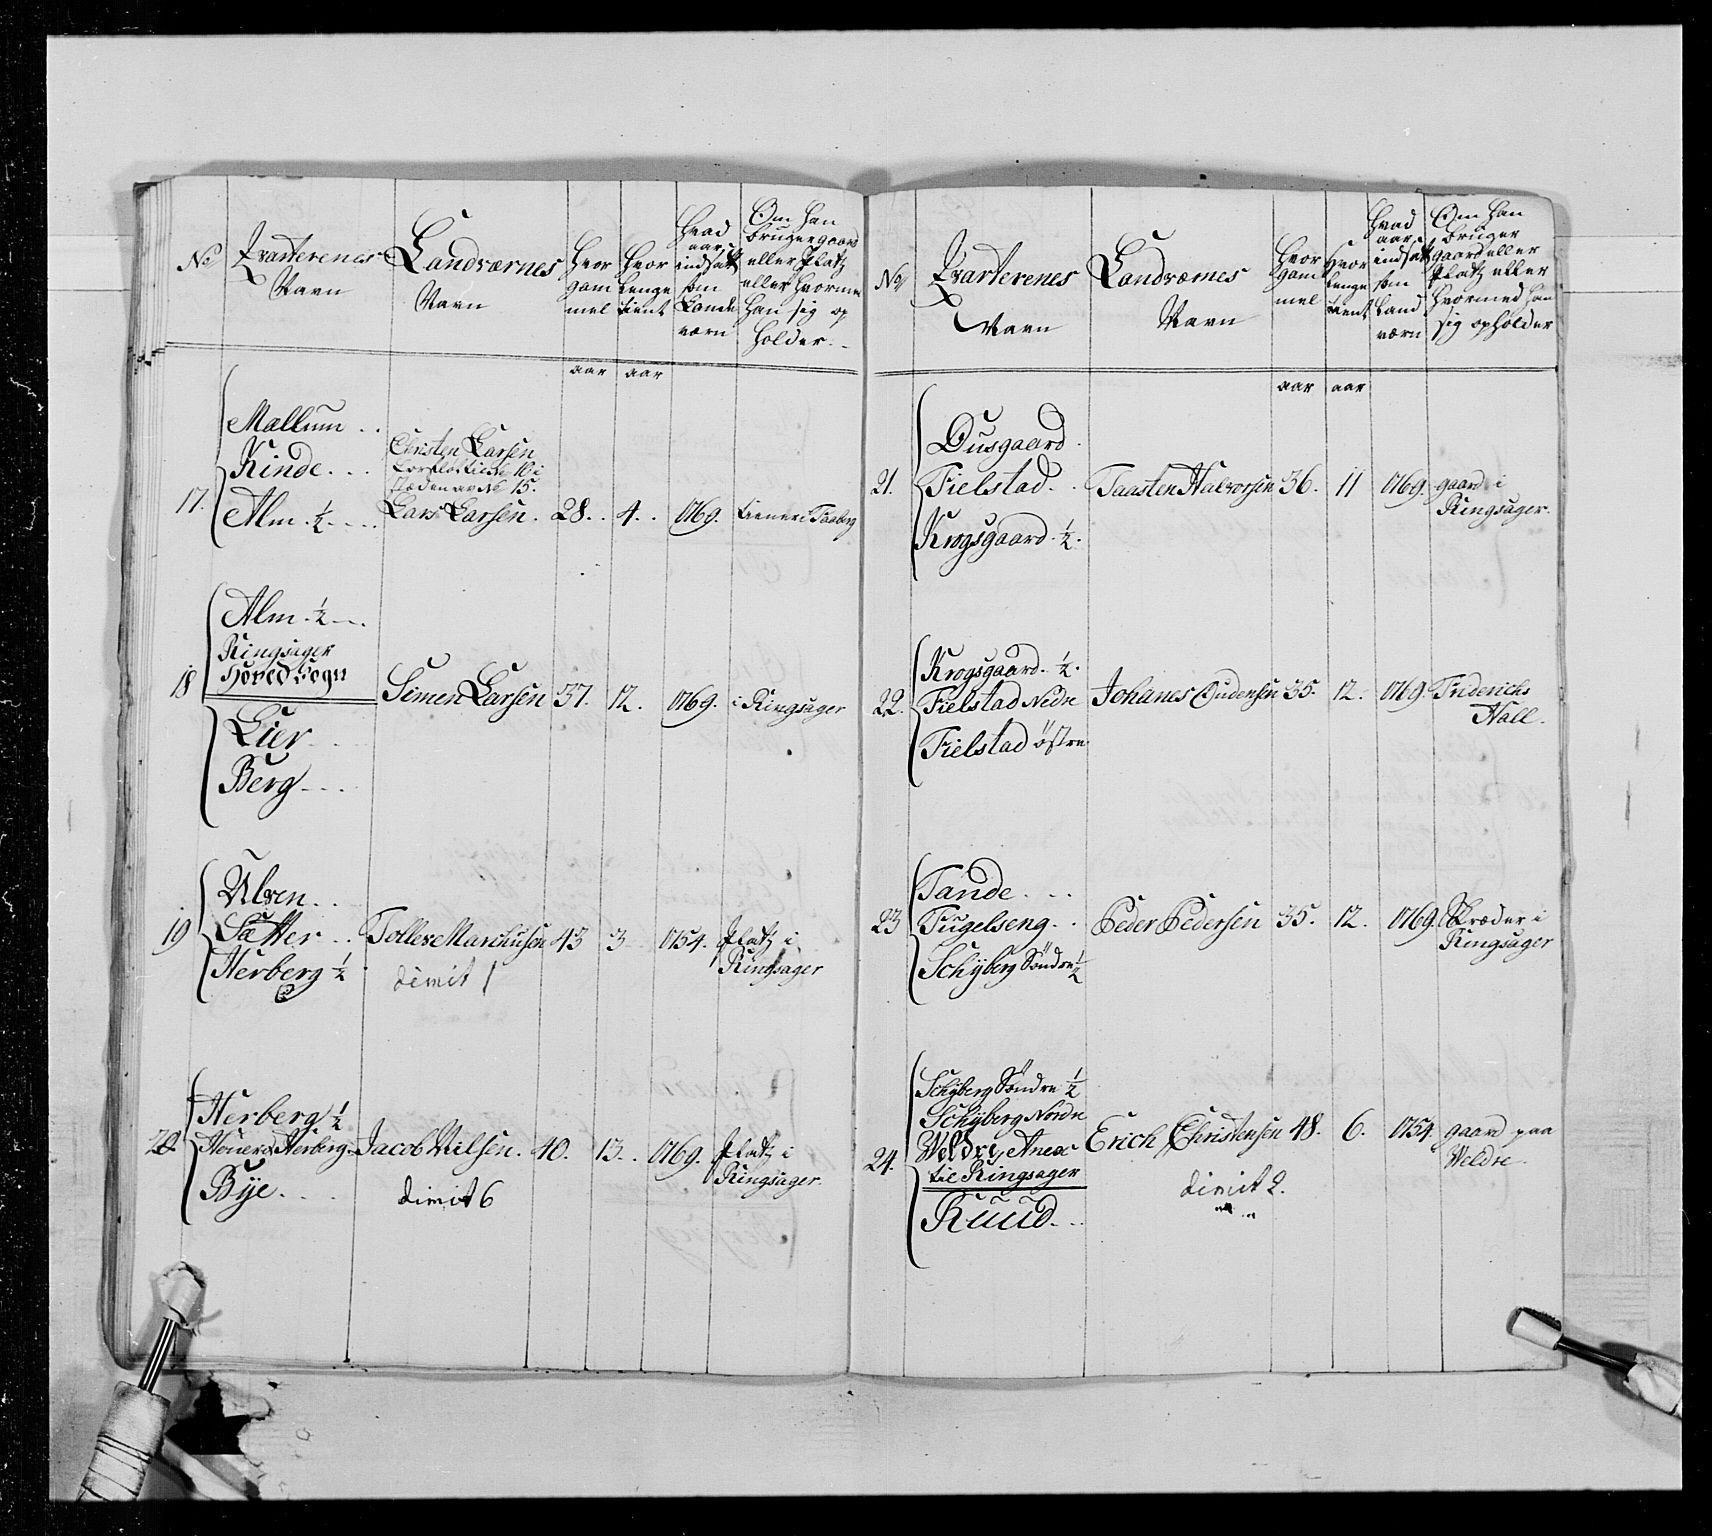 No
Qvarterenes
Navn
Landværnes
Navn
Hvor
gam
mel
Hvor
lenge
tient
Hvad
aar
indsatt
som
Lande
værn
Om han
bruger gaard
eller Platz
eller hvormed
han sig op
holder.
aar
aar
17.
Mællum . .
Kinde . . .
Alm ½ . . .
Christen Larsen
No 15.
Lars Larsen.
28. . 4. . 1769. tiener i Faaberg
18
Alm ½
Ringsager
Hoved Sogn
Lier . .
Berg . . .
Simen Larsen 37. 12. 1769. i Ringsager
19
Ulven . .
Sætter . .
Herberg ½
Tollev Marchusen 43 3 1754. Platz i
Ringsager
dimit 1
20
Herberg ½
Herberg
Bye . . .
Jacob Nilsen. 40. 13. . 1769. Platz i
Ringsager.
dimit 6
No
Qvarterenes
Navn
Landværnes
Navn
Hvor
gam
mel
Hvor
lenge
tient
Hvad
aar
indsatt
som
Land
værn
Om han
bruger
gaard eller
Platz eller
hvormed han
sig opholder
aar
aar
21.
Dusgaard.
Fielstad. .
Krogsgaard. ½.
Taasten Halvorsen 36. 11 1769. gaard i
Ringsager.
22.
Krogsgaard. ½.
Fielstad Nedre
Fielstad østre
Johanes Oudensen 35. 12. 1769. Friderichs
Hall.
23
Tande . . .
Fugelseng. .
Schÿberg Søndre ½
Peder Pedersen 35. 12. 1769. Skræder i
Ringsager
24.
Schÿberg Søndre ½
Schÿberg Nordre
Weldre, Anex
til Ringsager
Ruud. . .
Erich Christensen 48. 6. 1754. gaard paa
Weldre.
dimit 2.